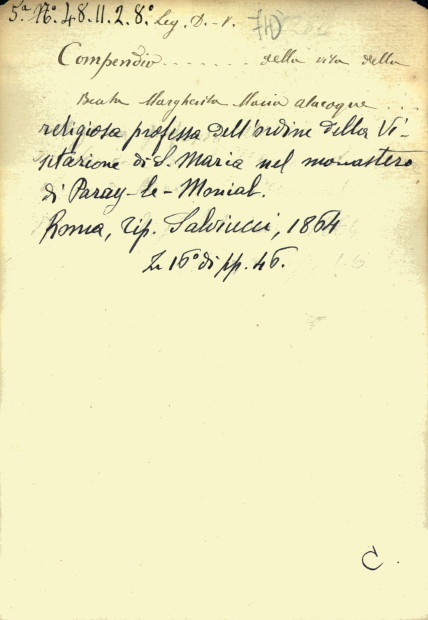 5.ª Nº 48. 11. 2. 8.º Leg. D.-V. 710
Compendio ....... della vita della
Beata Margherita Maria Alacoque ...
religiosa professa dell'ordine della Vi-
sitazione di S. Maria nel monastero
di Paray-le-Monial.
Roma, tip. Salviucci, 1864
In 16º di pp. 46.
C.